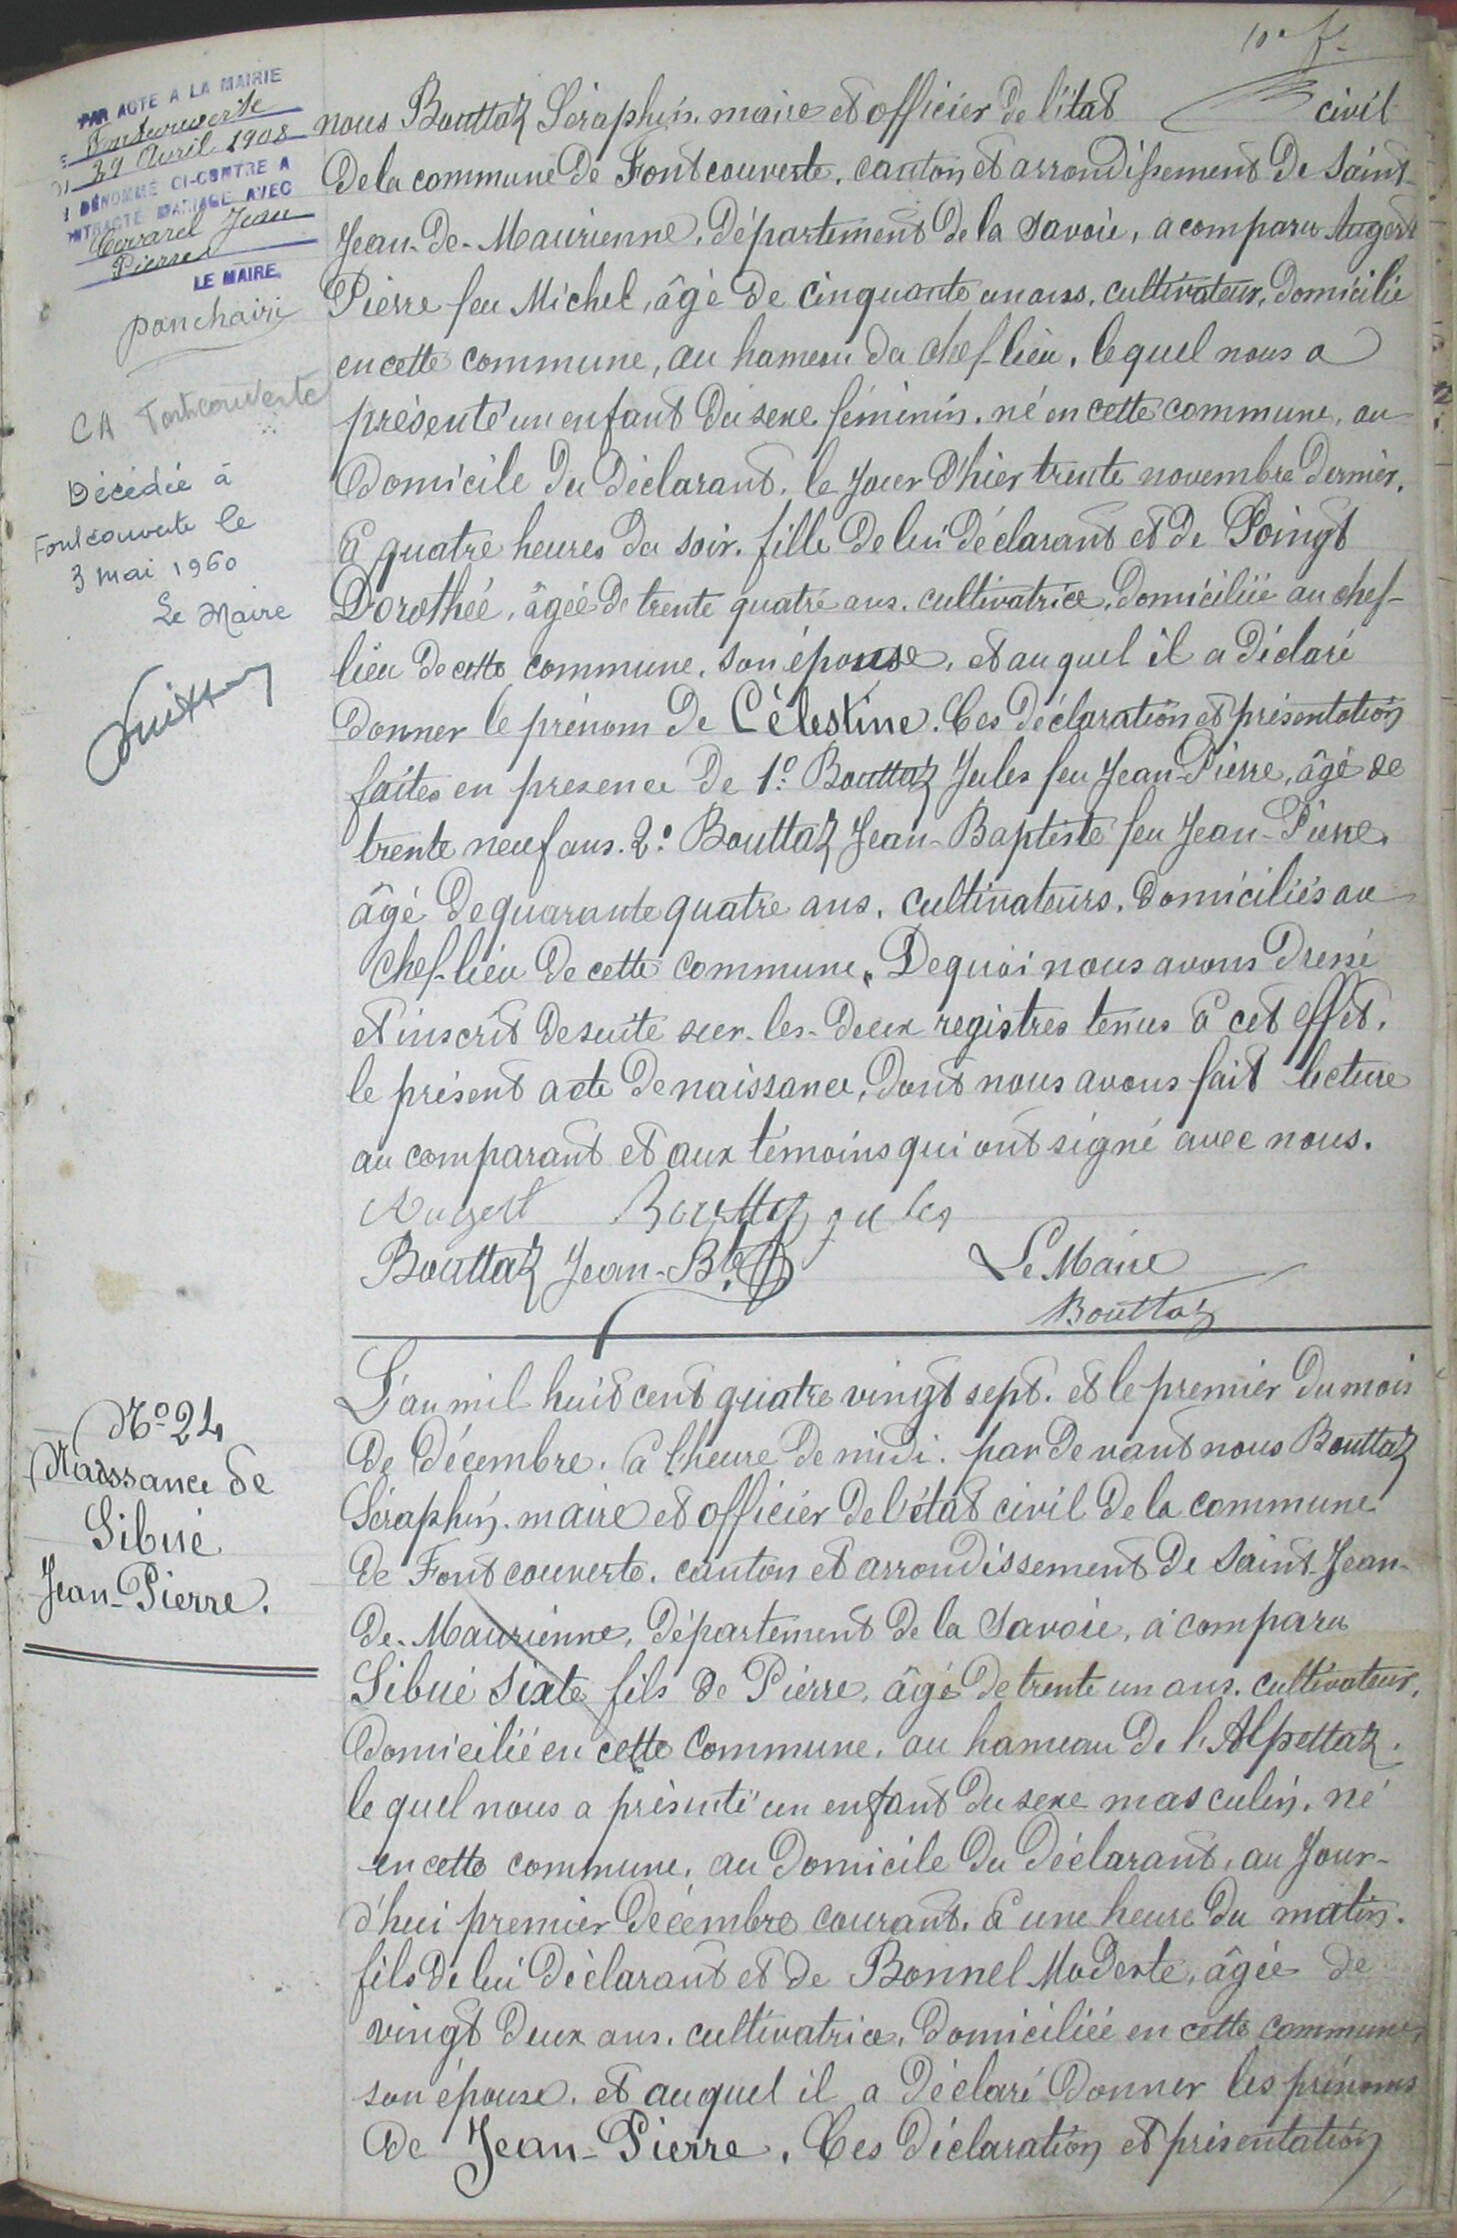 10e f.
PAR ACTE A LA MAIRIE
Fontcouverte
29 Avril 1908
DÉNOMMÉ CI-CONTRE A
NTRACTÉ MARIAGE AVEC
Jean
Pierre
LE MAIRE,
CA Fontcouverte
Décédée à
Fontcouverte le
3 mai 1960
Le Maire
nous Bouttaz Séraphin, maire et officier de l'état civil
de la commune de Fontcouverte, canton et arrondissement de Saint-
Jean-de-Maurienne, département de la Savoie, a comparu Augert
Pierre feu Michel, âgé de cinquante un ans, cultivateur, domicilié
en cette commune, au hameau du chef-lieu, lequel nous a
présenté un enfant du sexe féminin, né en cette commune, au
domicile du déclarant, le jour d'hier trente novembre dernier,
à quatre heures du soir, fille de lui déclarant et de Poingt
Dorothée, âgée de trente quatre ans, cultivatrice, domiciliée au chef-
lieu de cette commune, son épouse, et auquel il a déclaré
donner le prénom de Célestine. Ces déclaration et présentation
faites en presence de 1º Bouttaz Jules feu Jean-Pierre, âgé de
trente neuf ans. 2º Bouttaz Jean-Baptiste feu Jean-Pierre,
âgé de quarante quatre ans, cultivateurs, domiciliés au
chef-lieu de cette commune. De quoi nous avons dressé
et inscrit de suite sur-les-deux registres tenus à cet effet,
le présent acte de naissance, dont nous avons fait lecture
au comparant et aux témoins qui ont signé avec nous.
Augert Bouttaz jules
Bouttaz Jean-Bte Le Maire
Bouttaz
Nº 24
Naissance de
Sibué
Jean-Pierre.
L'an mil huit cent quatre vingt sept, et le premier du mois
de décembre, à l'heure de midi, par devant nous Bouttaz
Séraphin, maire et officier de l'état civil de la commune
de Fontcouverte, canton et arrondissement de Saint-Jean-
de-Maurienne, département de la Savoie, a comparu
Sibué Sixte fils de Pierre, âgé de trente un ans, cultivateur,
domicilié en cette commune, au hameau de l'Alpettaz,
le quel nous a présenté un enfant du sexe masculin, né
en cette commune, au domicile du déclarant, au jour-
d'hui premier décembre courant, à une heure du matin,
fils de lui déclarant et de Bonnel Modeste, âgée de
vingt deux ans, cultivatrice, domiciliée en cette commune,
son épouse, et auquel il a déclaré donner les prénoms
de Jean-Pierre. Ces déclaration et présentation